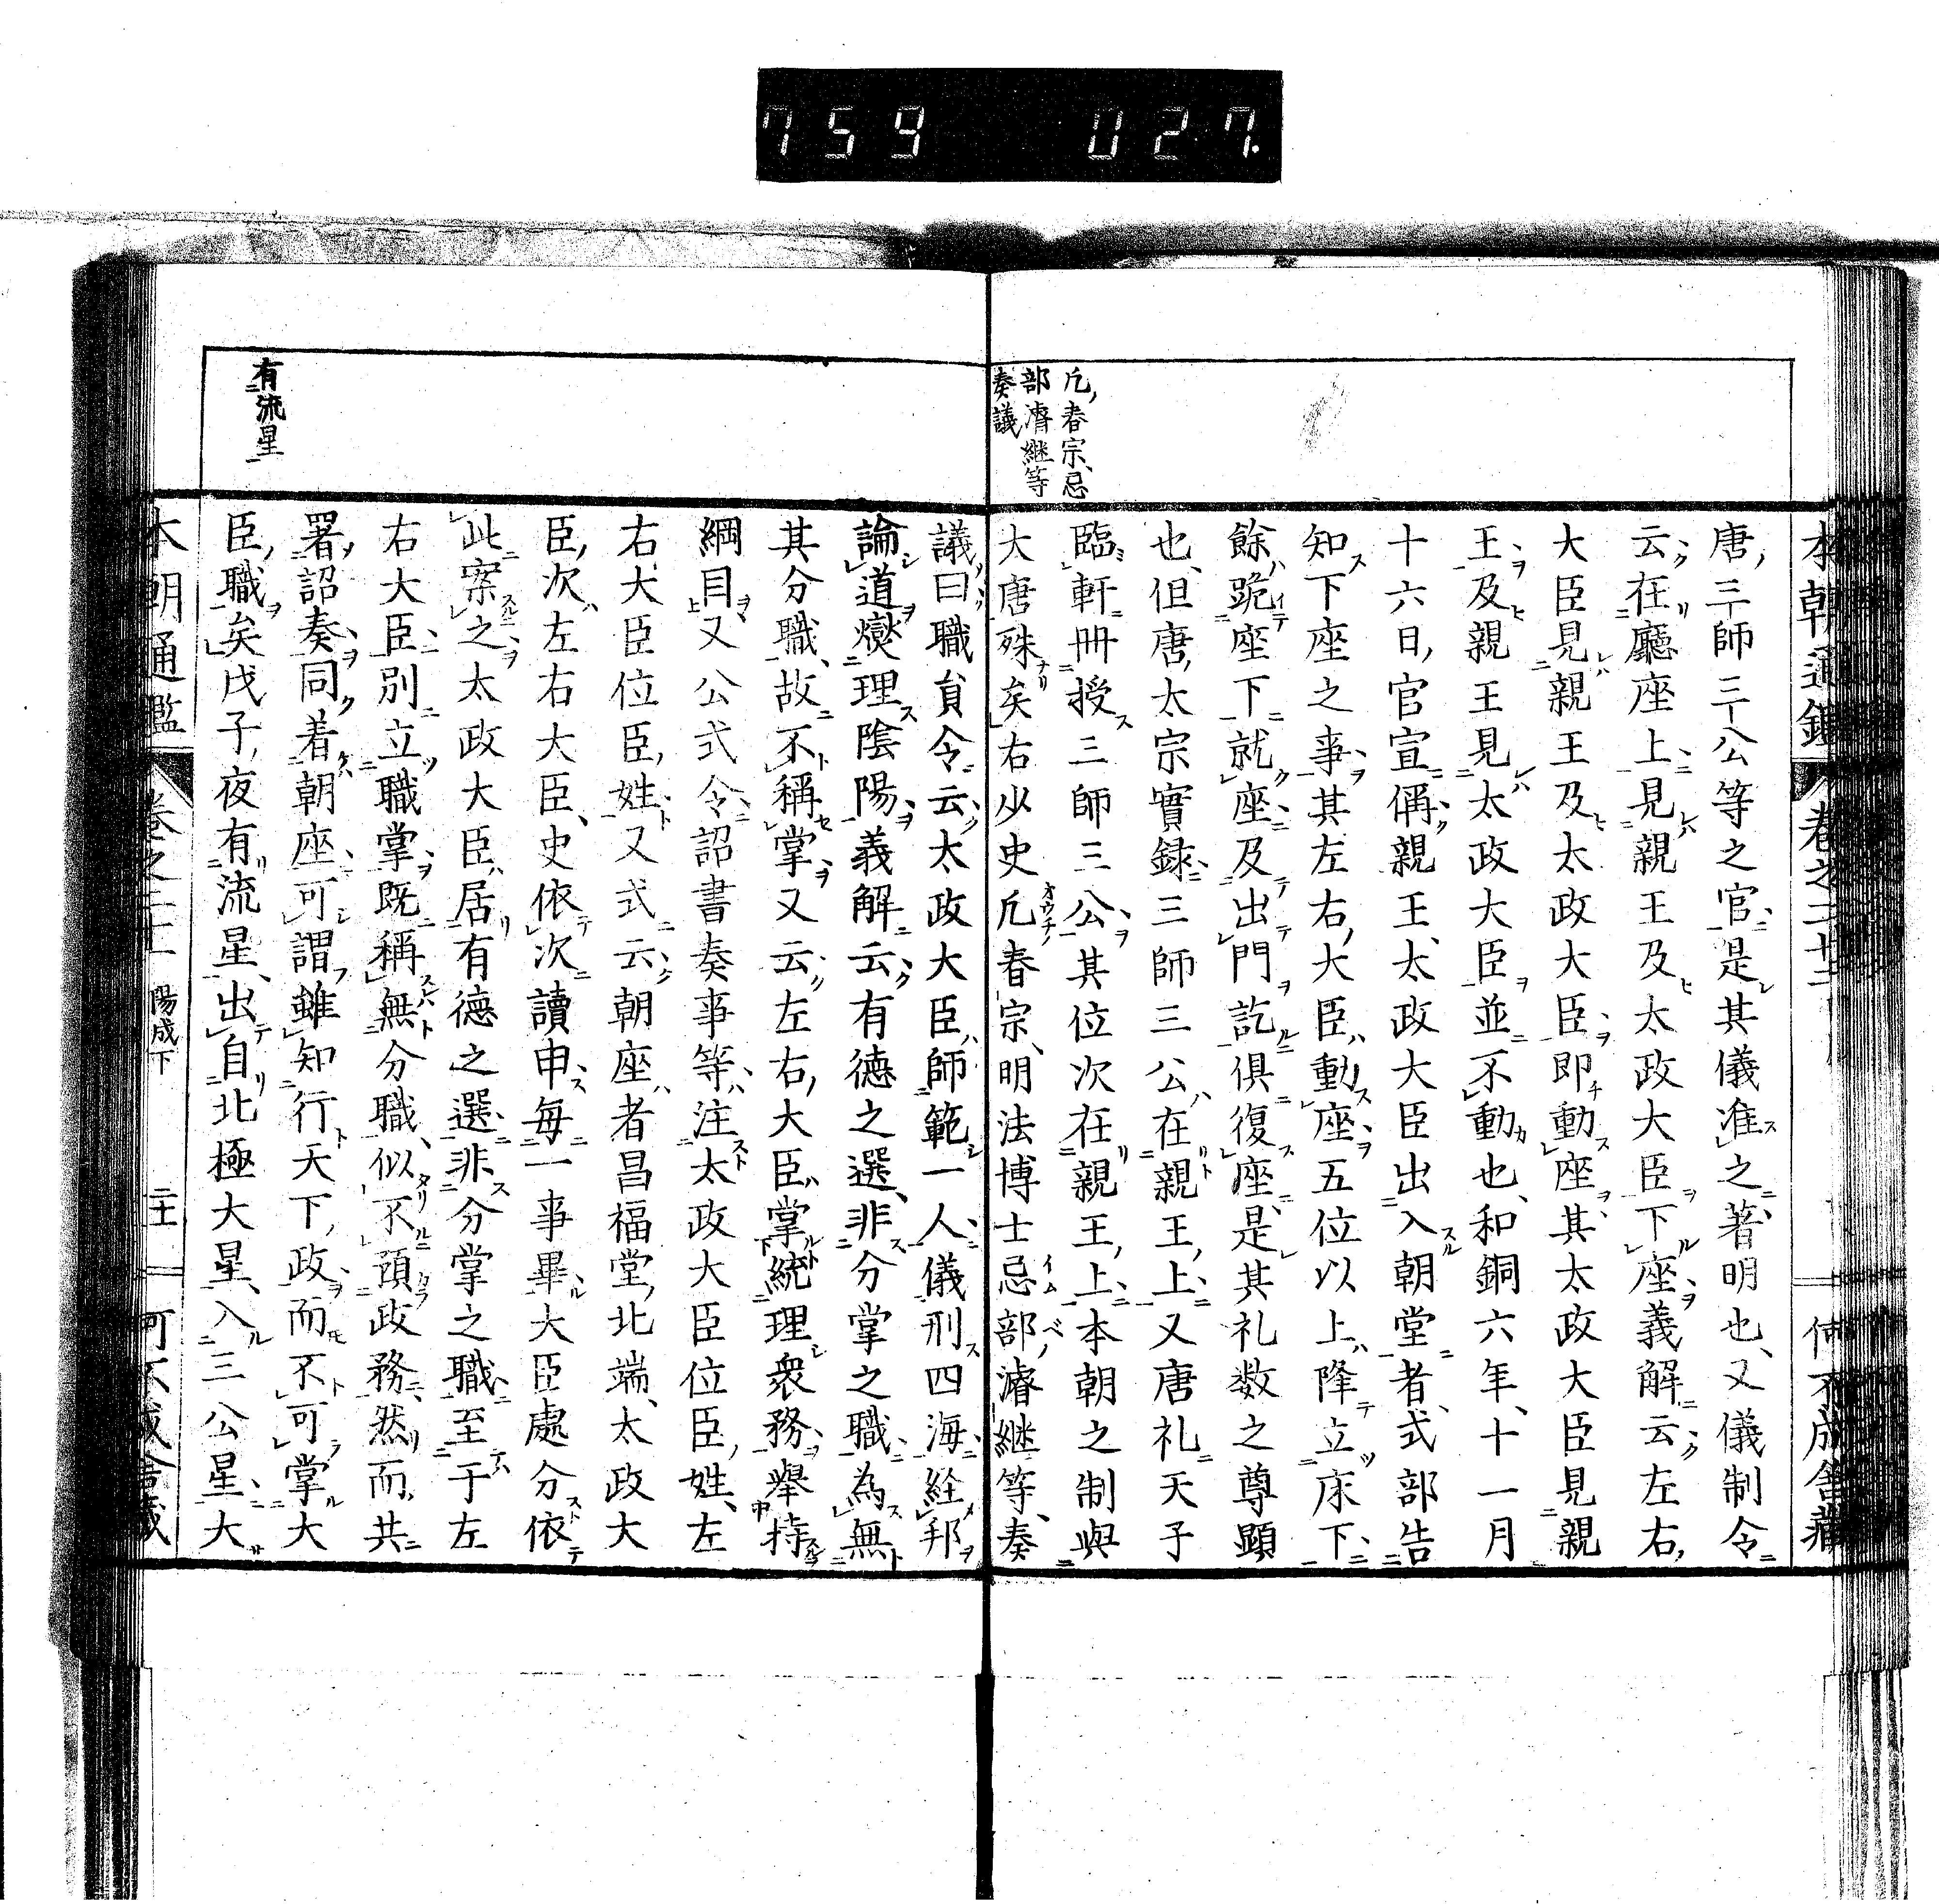 759 027.
本朝通鑑 卷之二十二 何不成舎藏
凡春宗忌
部濬継等
奏議
唐三師三公等之官是其儀准之著明也又儀制令
云在廳座上見親王及太政大臣下座義解云左右
大臣見親王及太政大臣即動座其太政大臣見親
王及親王見太政大臣並不動也和銅六年十一月
十六日官宣偁親王太政大臣出入朝堂者式部告
知下座之事其左右大臣動座五位以上降立床下
餘跪座下就座及出門訖俱復座是其礼数之尊顕
也但唐太宗實録三師三公在親王上又唐礼天子
臨軒冊授三師三公其位次在親王上本朝之制與
大唐殊矣右少史凡春宗明法博士忌部濬継等奏
議曰職員令云太政大臣師範一人儀刑四海経邦
論道燮理陰陽義解云有德之選非分掌之職為無
其分職故不稱掌又云左右大臣掌統理衆務舉持
綱目又公式令詔書奏事等注太政大臣位臣姓左
右大臣位臣姓又式云朝座者昌福堂北端太政大
臣次左右大臣史依次讀申每一事畢大臣處分依
此案之太政大臣居有德之選非分掌之職至于左
右大臣別立職掌既稱無分職似不預政務然而共
署詔奏同着朝座可謂雖知行天下政而不可掌大
臣職矣戊子夜有流星出自北極大星入三公星大
有流星
本朝通鑑 卷之二十二 陽成下 二十 何不成舎藏